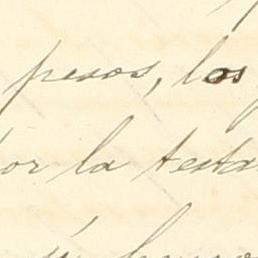 pesos, los
or la testa